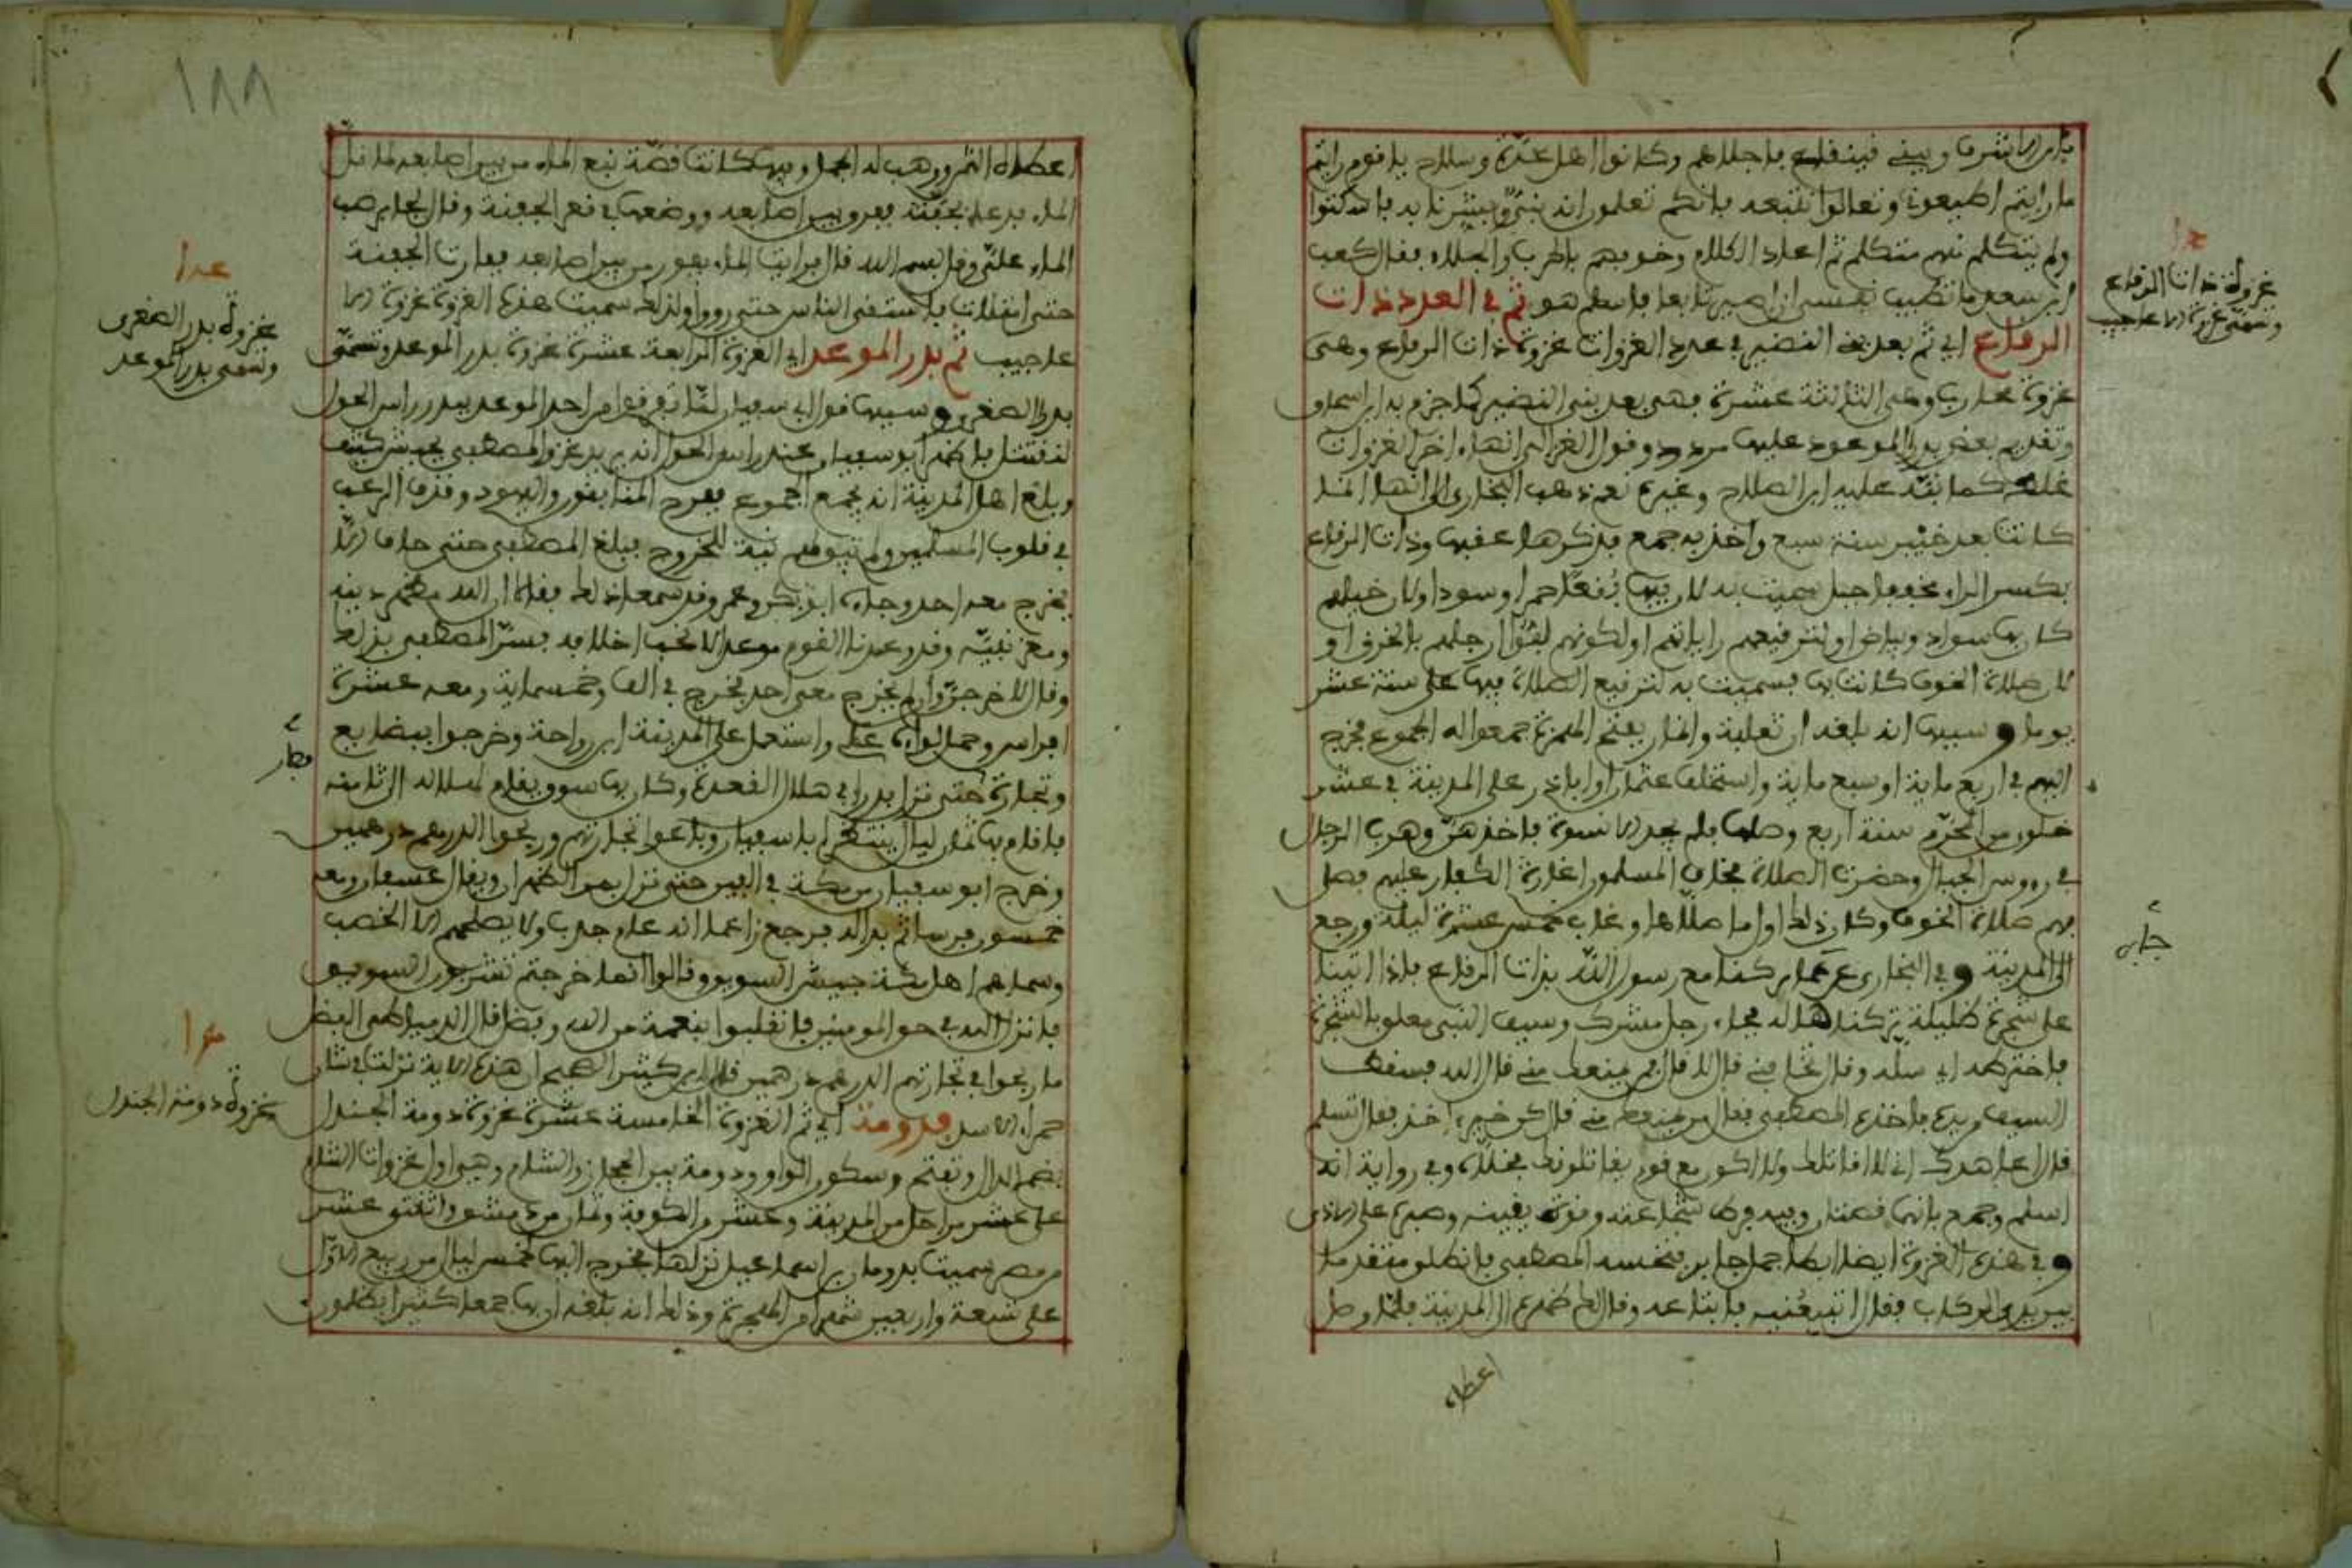 بابن الاشرف وبني فينقاع باجلاهم وكانوا اهل عدة وسلاح يا قوم رايتم
ما رايتم اطيعوني وتعالوا نتبعه بانكم تعلمون انه نبي ويبشرنا به باسكتوا
ولم يتكلم منهم متكلم ثم اعاد الكلام وخوفهم بالحرب والجلاء فقال كعب
ابن سعد ما تطيب نفسي ان اصير تابعا فاسلم هو ثم في العدد ذات
الرفاع اي ثم بعد بني النضير في عدد الغزوات غزوة ذات الرفاع وهي
غزوة محارب وهي الثالثة عشرة فهي بعد بني النضير كما جزم به ابن اسحاق
وتقديم بعض بدر الموعود عليها مردود وقول الغزالي انها اخر الغزوات
غلط كما نبه عليه ابن الصلاح وغيره نعم ذهب البخاري الى انها انما
كانت بعد خيبر سنة سبع واخذ به جمع فذكرها عقبها وذات الرفاع
بكسر الراء مخففا جبل سميت به لان فيه بقعا حمرا وسودا او لان خيلهم
كان بها سواد وبياض او لترقيعهم راياتهم او لكونهم لفوا ارجلهم بالخرق او
لان صلاة الخوف كانت بها فسميت به لترقيع الصلاة فيها على ستة عشر
يوما وسببها انه بلغه ان ثعلبة وانمار بفتح الهمزة جمعوا له الجموع فخرج
اليهم في اربع ماية او سبع ماية واستخلف عثمان او ابا ذر على المدينة في عشر
خلون من المحرم سنة اربع وصلها فلم يجد الا نسوة فاخذهن وهرب الرجال
في رووس الجبال وحضرت الصلاة فخاف المسلمون اغارة الكفار عليهم فصلى
بهم صلاة الخوف وكان ذلك اول ما صلاها وغاب خمس عشرة ليلة ورجع
الى المدينة وفي البخاري عن جابر كنا مع رسول الله بذات الرفاع فاذا اتينا
على شجرة ظليلة تركناها له فجاء رجل مشرك وسيف النبي معلق بالشجرة
فاخترطه اي سله وقال تخافني قال لا قال فمن يمنعك مني قال الله فسقط
السيف من يده فاخذه المصطفى فقال من يمنعك مني قال كن خير اخذ فقال تسلم
قال اعاهدك اني لا اقاتلك ولا اكون مع قوم يقاتلونك فخلاه وفي رواية انه
اسلم وجمع بانها قصتان وفيه فرط شجاعته وقوة يقينه وصبره على الاذى
وفي هذه الغزوة ايضا ابطا جمل جابر فنخسه المصطفى فانطلق متقدما
بين يدي الركاب فقال اتبيعنيه فابتاعه وقال لك ظهره الى المدينة فلما وصل
اعطاه
غزوة ذات الرفاع
وتسمى غزوة الاعاجيب
جابر
١٨٨
اعطاه الثمن ووهب له الجمل وفيها كانت قصة نبع الماء من بين اصابعه لما قل
الماء فدعا بجفنة ففرق بين اصابعه ووضعها في قعر الجفنة وقال لجابر صب
الماء علي وقل بسم الله قال فرايت الماء يفور من بين اصابعه ففارت الجفنة
حتى امتلات فاستقى الناس حتى رووا ولذلك سميت هذه الغزوة غزوة الا
عاجيب ثم بدر الموعد اي الغزوة الرابعة عشرة غزوة بدر الموعد وتسمى
بدر الصغرى وسببها قول ابي سفيان لما تفرقوا من احد الموعد ببدر راس الحول
لنقتتل فاظهر ابو سفيان عند راس الحول انه يريد غزو المصطفى بجيش كثيف
وبلغ اهل المدينة انه يجمع الجموع ففرح المنافقون واليهود وقذف الرعب
في قلوب المسلمين ولم تبق لهم نية للخروج فبلغ المصطفى حتى خاف الا
يخرج معه احد وجاءه ابو بكر وعمر وقد سمعا ذلك فقالا ان الله مظهر دينه
ومعز نبيه وقد وعدنا القوم موعدا لا نحب اخلافه فسر المصطفى بذلك
وقال لاخرجن وان لم يخرج معي احد فخرج في الف وخمسماية ومعه عشرة
افراس وحمل لواءه علي واستعمل على المدينة ابن رواحة وخرجوا ببضايع
وتجارة حتى نزل بدرا في هلال القعدة وكان بها سوق يقام لهلاله الى ثامنه
فاقام بها ثمان ليال ينتظر ابا سفيان وباعوا تجارتهم وربحوا الدرهم درهمين
وخرج ابو سفيان من مكة في العير حتى نزل بمر الظهران ويقال عسفان ومعه
خمسون فرسا ثم بدا له فرجع زاعما انه عام جدب ولا يصلحهم الا الخصب
وسماهم اهل مكة جيش السويق وقالوا انما خرجتم تشربون السويق
فانزل الله في حق المومنين فانقلبوا بنعمة من الله وفضل قال الدمياطي الفضل
ما ربحوا في تجارتهم الدرهم درهمين قال ابن كثير الصحيح ان هذه الاية نزلت في شان
حمراء الاسد فدومة اي ثم الغزوة الخامسة عشرة غزوة دومة الجندل
بضم الدال وتفتح وسكون الواو ودومة بين الحجاز والشام وهي اول غزوات الشام
على عشر مراحل من المدينة وعشر من الكوفة وثمان من دمشق واثنتي عشر
من مصر سميت بدومان بن اسماعيل نزلها فخرج اليها لخمس ليال من ربيع الاول
على تسعة واربعين شهرا من الهجرة وذلك انه بلغه ان بها جمعا كثيرا يظلمون
غزوة بدر الصغرى
وتسمى بدر الموعد
غزوة دومة الجندل